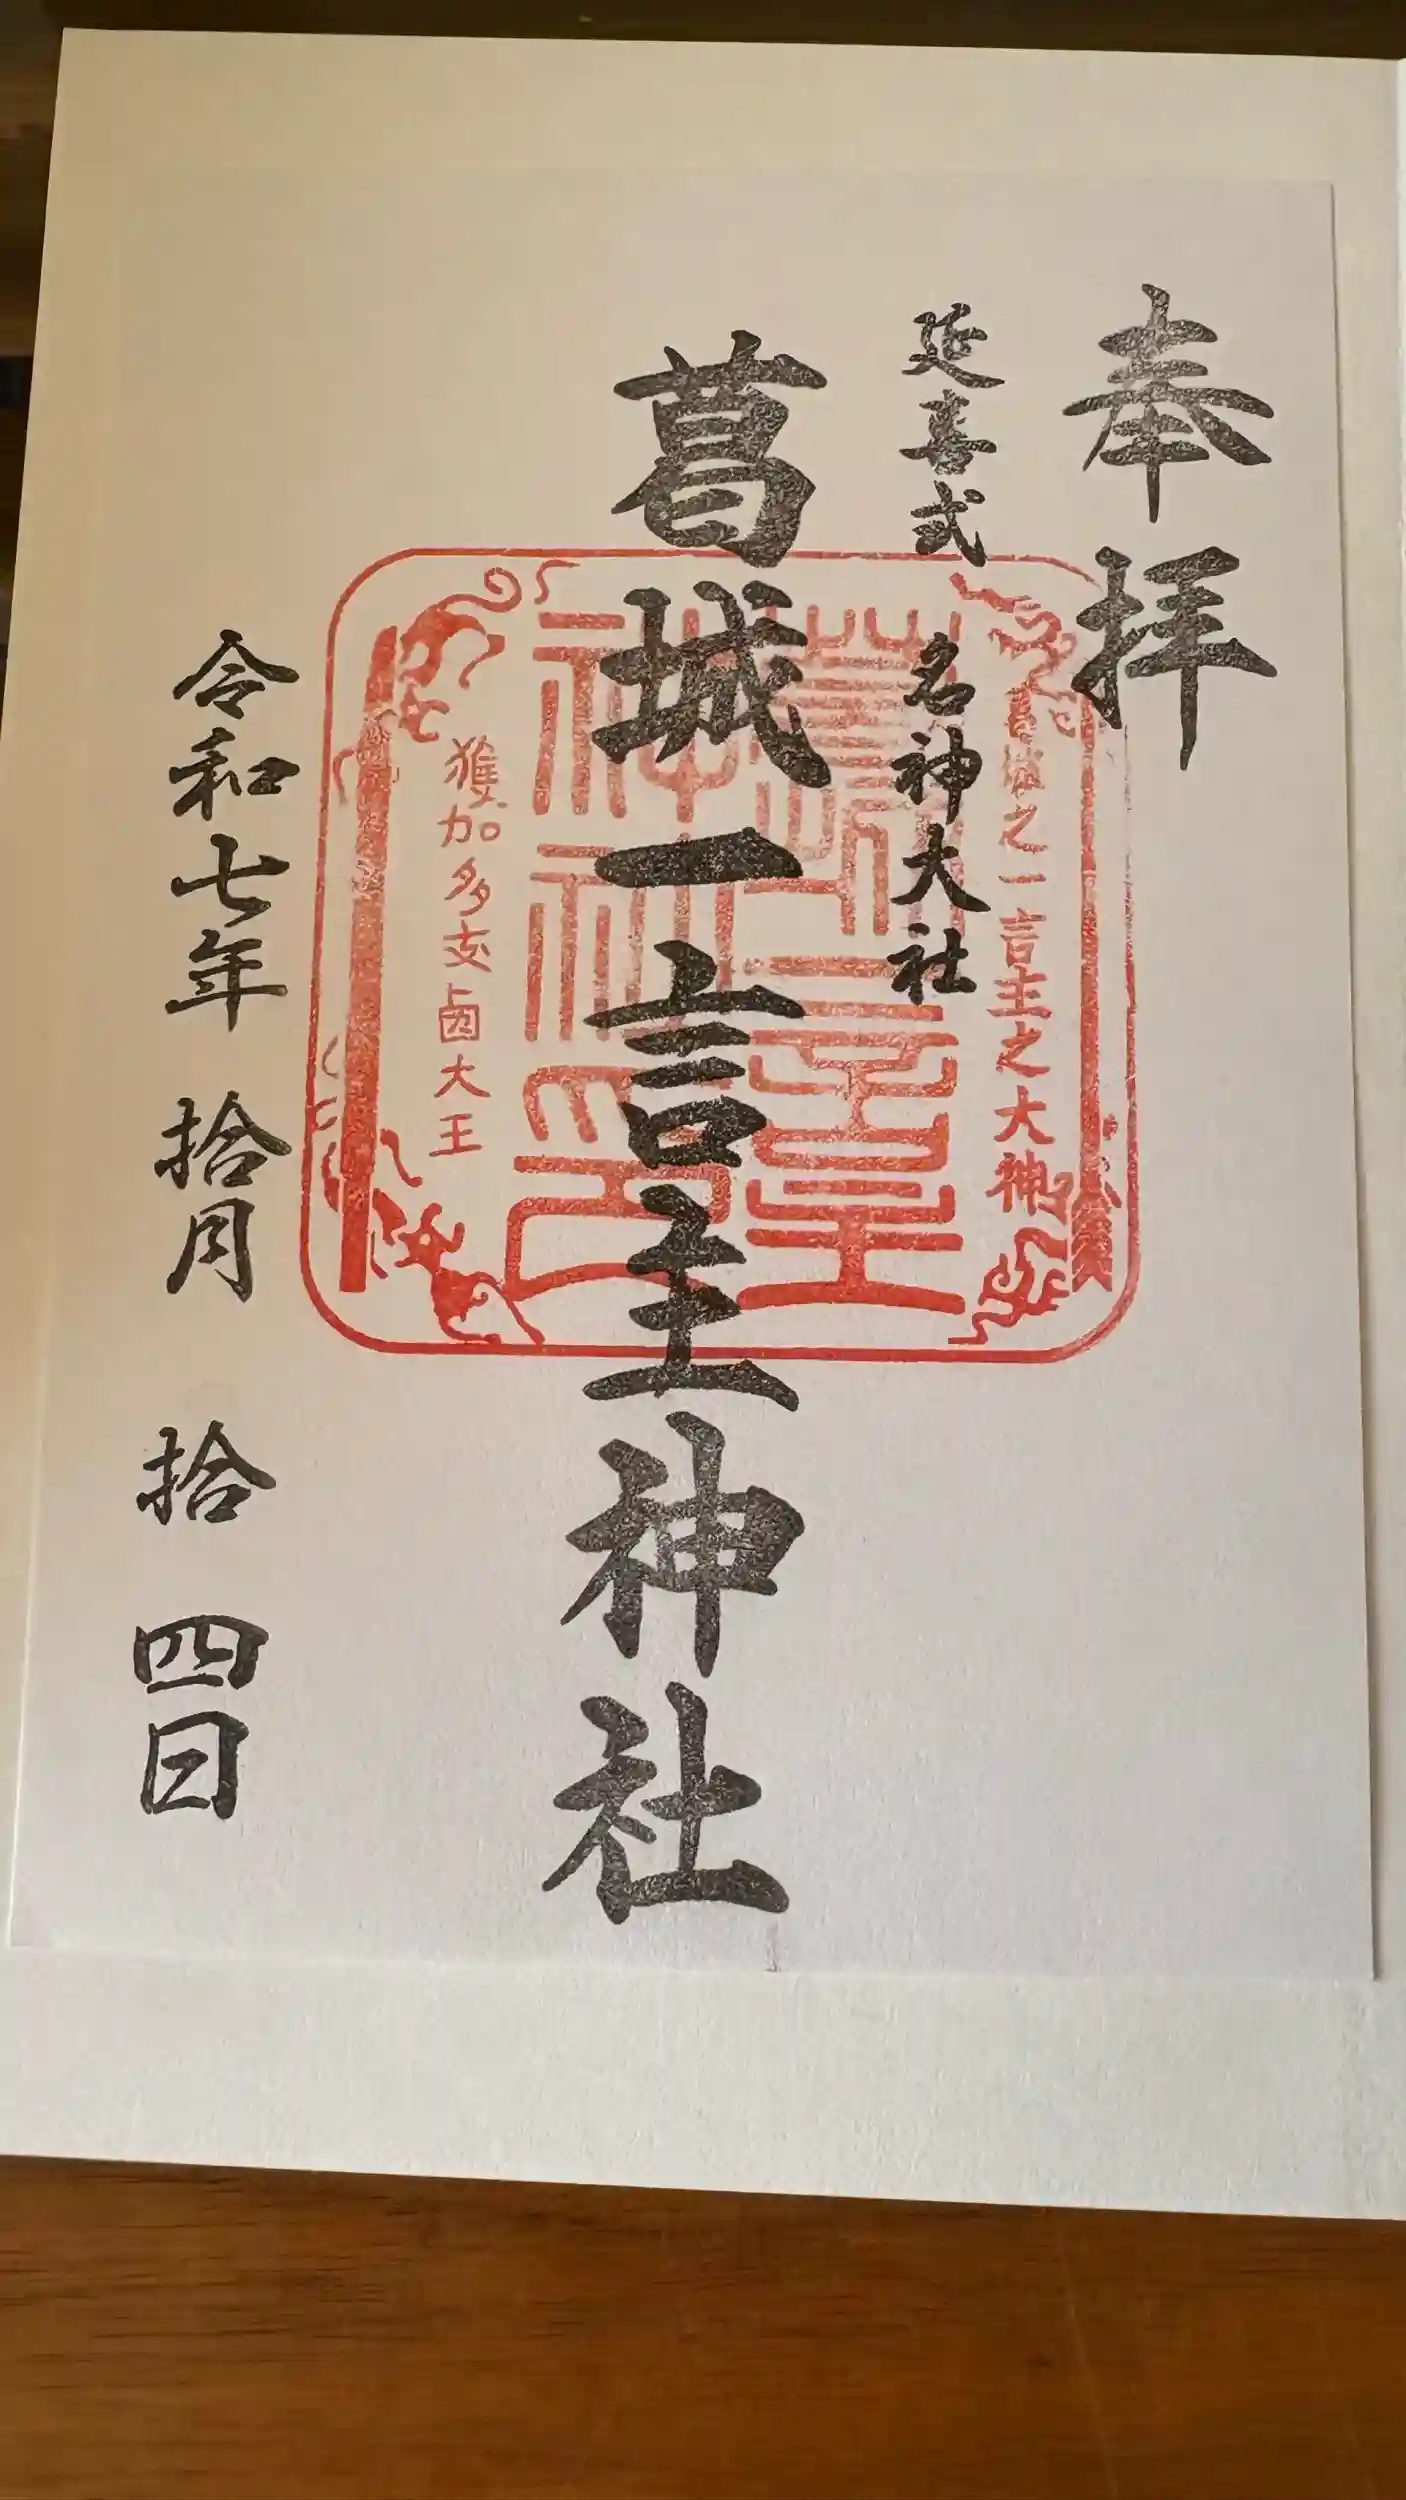 奉拝
延喜式 名神大社
葛城之一言主之大神
葛城一言主神社
葛城一言主神社印
獲加多支鹵大王
令和七年 拾月 拾四日